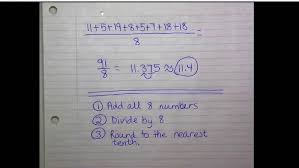 11+5+19+8+5+7+18+18
8
=
91
8
= 11.375 ≈ 11.4
① Add all 8 numbers
② Divide by 8
③ Round to the nearest
tenth.